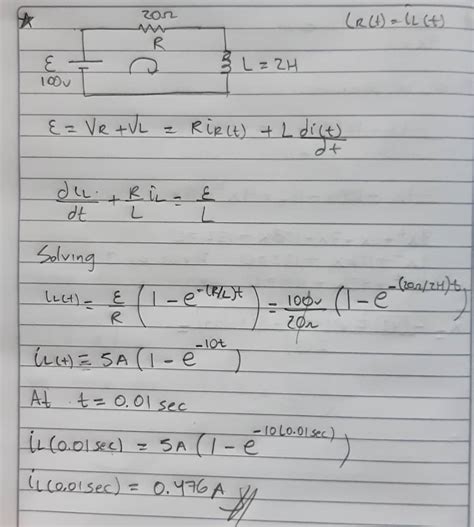 ★ 20Ω iR(t) = iL(t)
R
ε L = 2H
100v
ε = VR + VL = R iR(t) + L di(t)/dt
diL/dt + R/L iL = ε/L
Solving
iL(t) = ε/R (1 - e^-(R/L)t) = 100v/20Ω (1 - e^-(20Ω/2H)t)
iL(t) = 5A (1 - e^-10t)
At t = 0.01 sec
iL(0.01sec) = 5A (1 - e^-10(0.01sec))
iL(0.01sec) = 0.476A